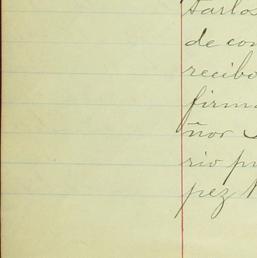 tarlos
de con
recibo
firma
ñor
rio pr
pez